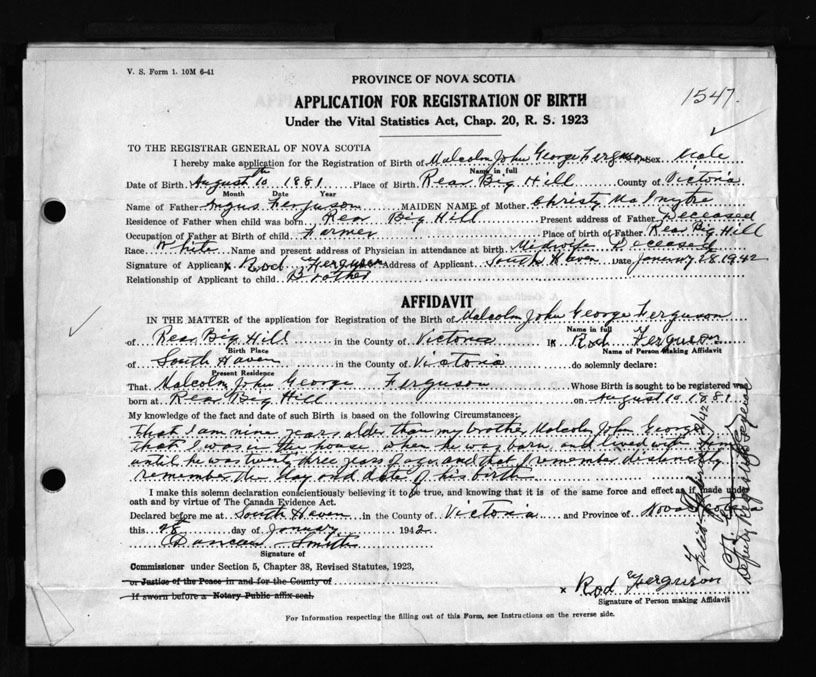 V. S. Form 1. 10M 6-41
PROVINCE OF NOVA SCOTIA
APPLICATION FOR REGISTRATION OF BIRTH
1547.
Under the Vital Statistics Act, Chap. 20, R. S. 1923
TO THE REGISTRAR GENERAL OF NOVA SCOTIA
I hereby make application for the Registration of Birth of Malcolm John George Ferguson Sex Male
Name in full
Date of Birth August 10th 1881 Place of Birth Rear Big Hill County of Victoria
Month Date Year
Name of Father Angus Ferguson MAIDEN NAME of Mother Christy
Residence of Father when child was born Rear Big Hill Present address of Father Deceased
Occupation of Father at Birth of child Farmer Place of birth of Father Rear Big Hill
Race White Name and present address of Physician in attendance at birth Midwife Deceased
Signature of Applicant x Rod Ferguson Address of Applicant South Haven Date January 28 1942
Relationship of Applicant to child Brother
AFFIDAVIT
IN THE MATTER of the application for Registration of the Birth of Malcolm John George Ferguson
Name in full
of Rear Big Hill in the County of Victoria I Rod Ferguson
Birth Place Name of Person Making Affidavit
of South Haven in the County of Victoria do solemnly declare:
Present Residence
That Malcolm John George Ferguson Whose Birth is sought to be registered was
born at Rear Big Hill on August 10 1881
My knowledge of the fact and date of such Birth is based on the following Circumstances:
That I am nine years older than my brother Malcolm John George
that I was in the house when he was born and lived with him
until he was twenty three years of age and that I remember distinctly
remember the day and date of his birth
I make this solemn declaration conscientiously believing it to be true, and knowing that it is of the same force and effect as if made under
oath and by virtue of The Canada Evidence Act.
Declared before me at South Haven in the County of Victoria and Province of Nova Scotia
this 28 day of January 1942
Duncan Smyth
Signature of
Commissioner under Section 5, Chapter 38, Revised Statutes, 1923,
or Justice of the Peace in and for the County of
If sworn before a Notary Public affix seal.
x Rod Ferguson
Signature of Person making Affidavit
For Information respecting the filling out of this Form, see Instructions on the reverse side.
Deputy Registrar General